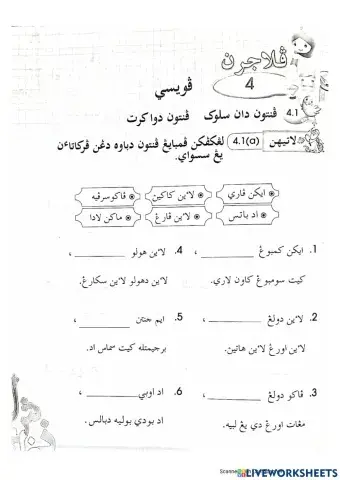 ڤلاجرن
4
ڤويسي
4.1 ڤنتون دان سلوک ڤنتون دوا کرت
لاتيهن 4.1(a) لڠکڤکن ڤمبايڠ ڤنتون دباوه دڠن ڤرکاتاءن
يڠ سسواي.
ايکن ڤاري لاين کاکين ڤاکوسرڤيه
اد باتس لاين ڤارڠ ماکن لادا
1. ايکن کمبوڠ ________ ،
کيت سومبوڠ کاون لاري.
2. لاين دولڠ ________ ،
لاين اورڠ لاين هاتين.
3. ڤاکو دولڠ ________ ،
مڠات اورڠ دي يڠ لبيه.
4. لاين هولو ________ ،
لاين دهولو لاين سکارڠ.
5. ايم جنتن ________ ،
برجيمتله کيت سماس اد.
6. اد اوبي ________ ،
اد بودي بوليه دبالس.
LIVEWORKSHEETS